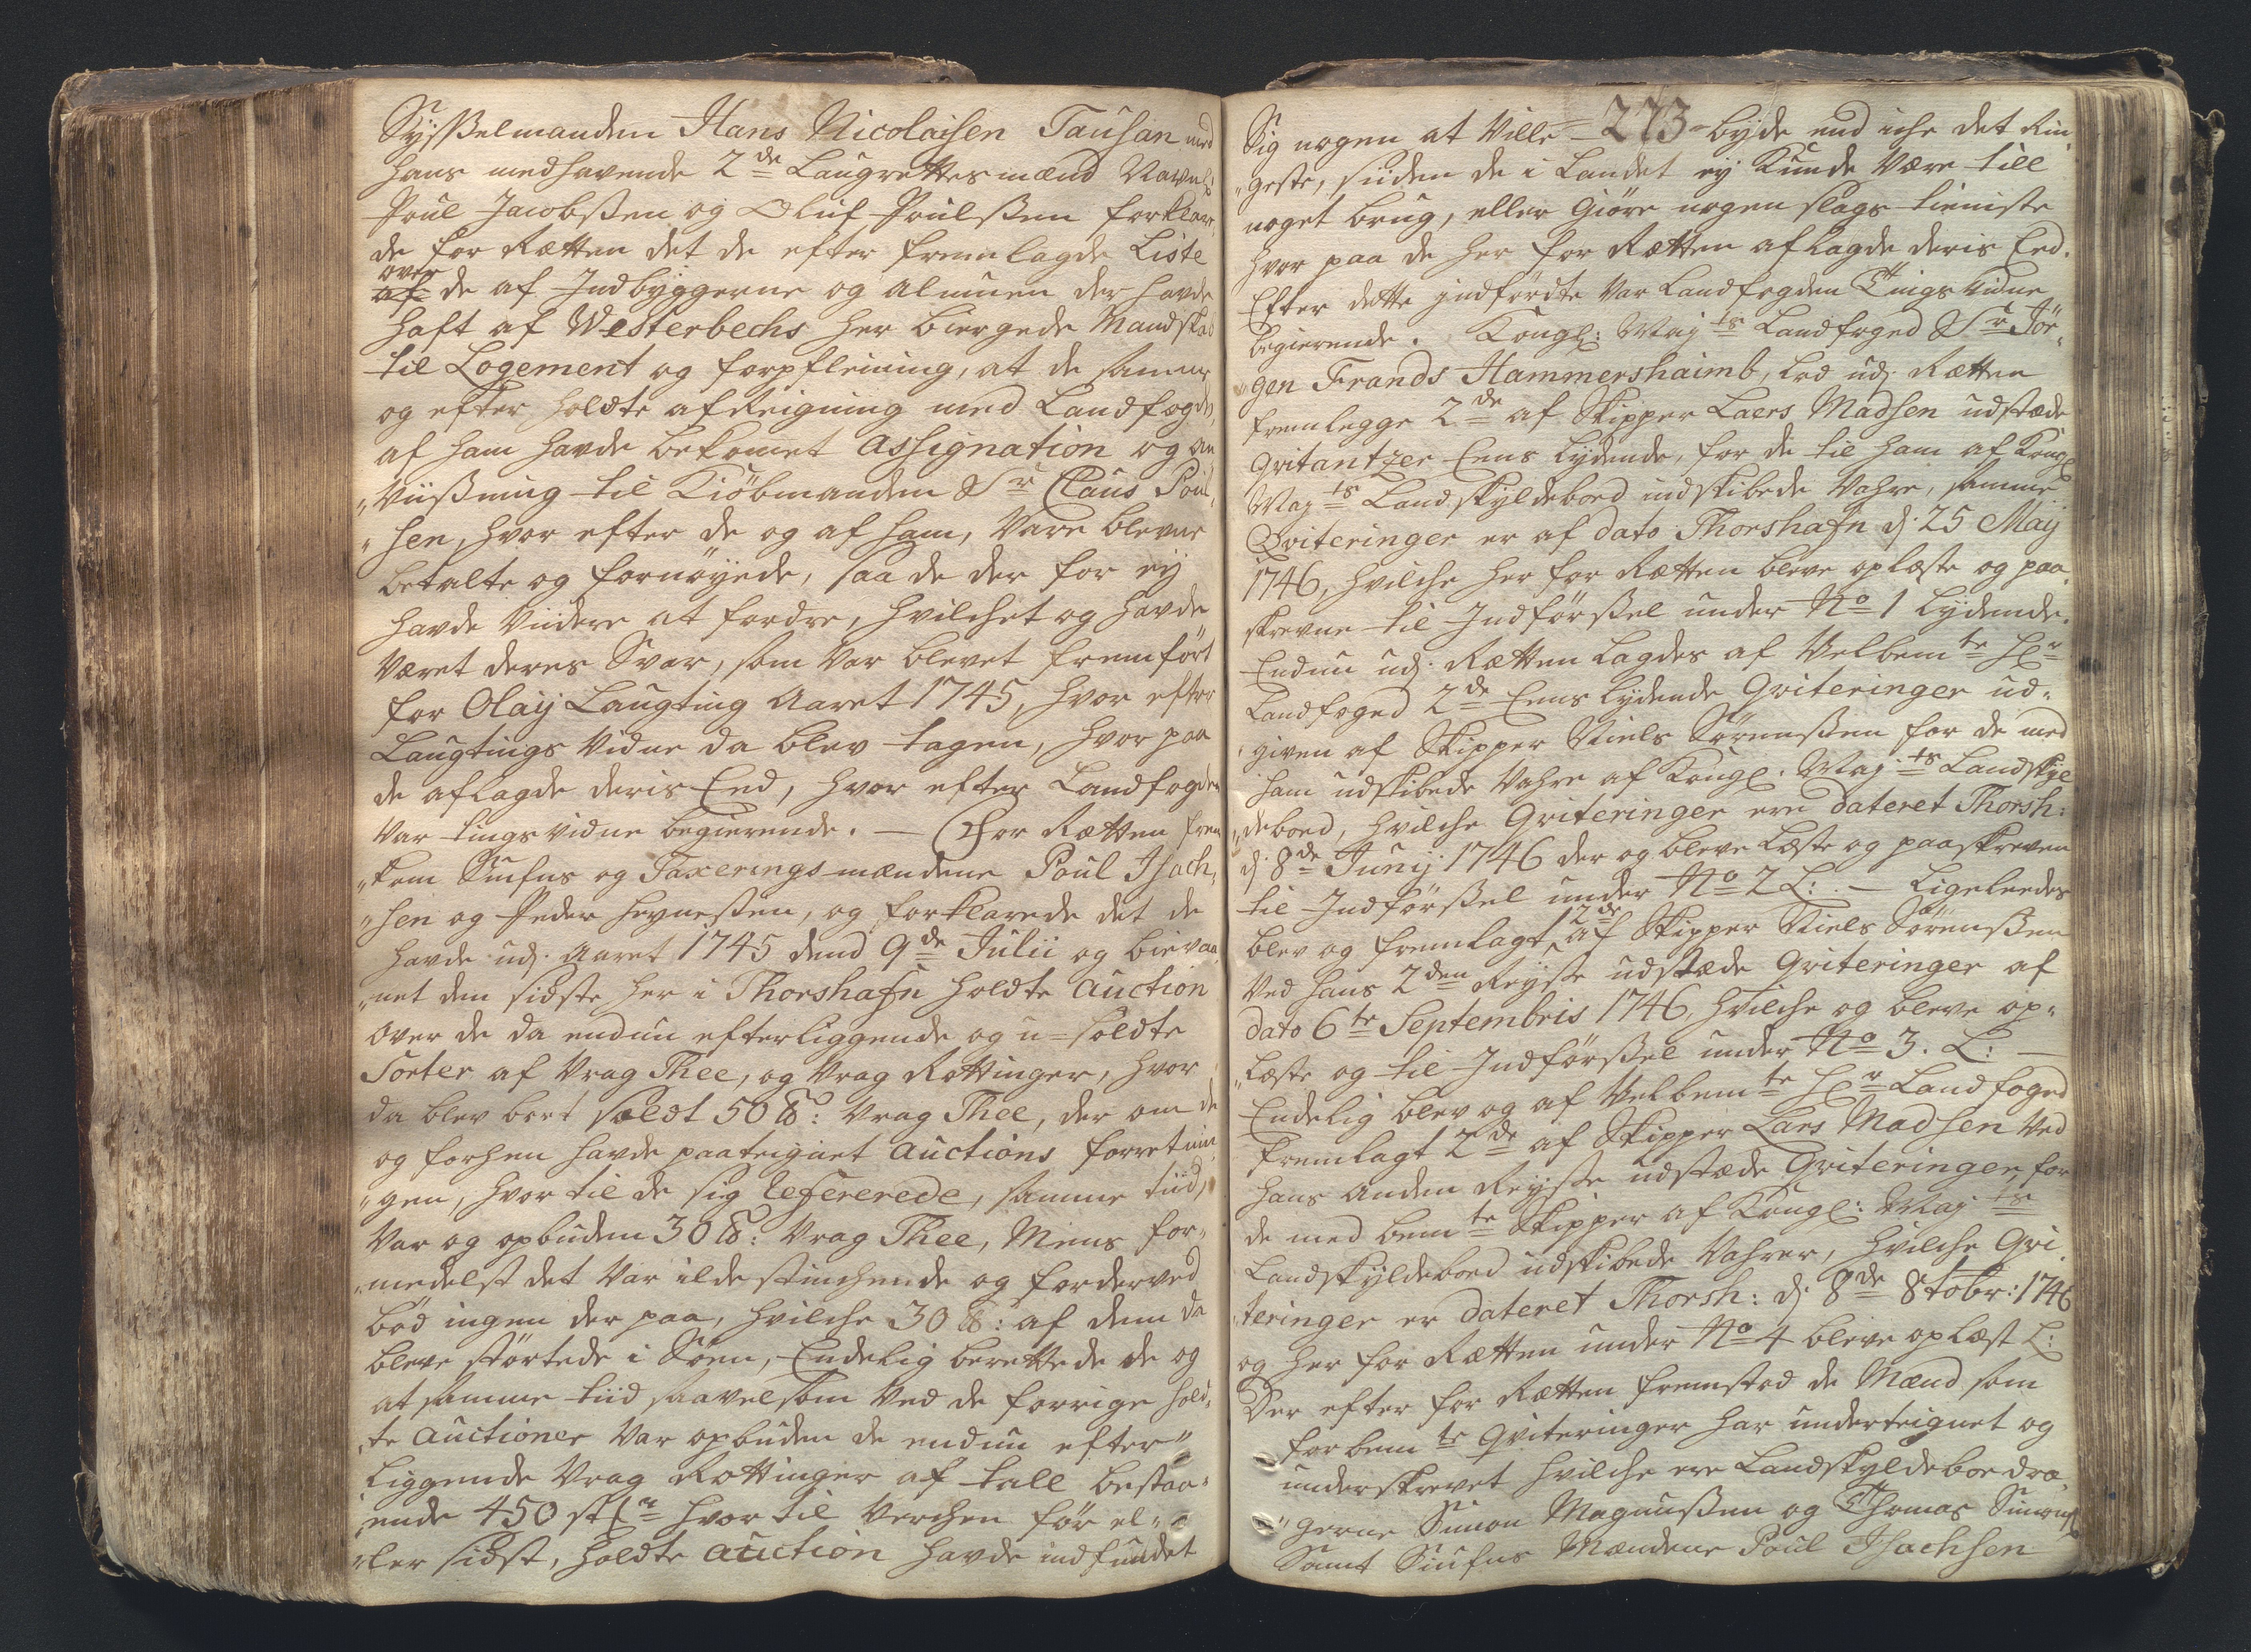 Sysselmanden Hans Nicolaisen Tausan med
hans medhavende 2de Laugrettesmænd Navnl:
Poul Jacobsen og Oluf Poulsen forklare„
de for Rætten det de efter fremlagde Liste
over
af de af Indbyggerne og Almuen der havde
haft af Westerbechs her biergede Mandskab
til Logement og forpfleining, at de samme
og efter holdte afReigning med Landfogden,
af ham havde bekomet Assignation og an„
„viisning til Kiöbmanden Sr Claus Poul„
„sen, hvor efter de og af ham, Vare blevne
betalte og fornöyede, saa de der for ej
havde Viidere at fordre, hvilchet og havde
Været deres Svar, som Var blevet fremfört
for Olaij Laugting Aaret 1745, hvor efter
Laugtings Vidne da blev tagen, hvor paa
de aflagde deris Eed, hvor efter Landfogden
Var tings vidne begierende. — For Rætten frem
„kom Siufns og Taxerings-mændene Poul Isach„
„sen og Peder Heyneßen, og forklarede det de
havde udj. Aaret 1745 dend 9de Julii og bievaa„
„net den sidste her i Thorshafn holdte Auction
over de da endnu efterliggende og u-soldte
Sorter af Vrag Thee, og Vrag Rottinger, hvor
da blev bort soldt 50 ℔: Vrag Thee, der om de
og forhen havde paateignet Auctions forretnin„
„gen, hvor til de sig refererede, samme tiid,
Var og opbuden 30 ℔: Vrag Thee, Mens for„
„medelst det Var ilde stinchende og forderved
bød ingen der paa, hvilche 30 ℔: af dem da
bleve störtede i Söen, Endelig berettede de og
at samme tiid saavelsom Ved de forrige hold„
„te Auctioner Var opbuden de endnu efter„
liggende Vrag Rottinger af tall bestaa„
„ende 450 stkr hvor til Verchen för el„
„ler sidst, holdte Auction havde indfundet
273
Sig nogen at Ville byde end iche det Rin„
„geste, siiden de i Landet ey Kunde Være till
noget brug, eller Giöre nogen slags tieniste
hvor paa de her for Rætten aflagde deris Eed.
Efter dette indførdte Var Landfogden Tings Vidne
begierende. Kongl: Mayts Landfoged Sr Jör„
„gen Frands Hammershaimb, lod udj Rætten
fremlegge 2de af Skipper Laers Madsen udstæde
Qvitantzer Eens lydende, for de til ham af Kongl
Mayts Landskyldeboed indskibede Vahre, samme
Qviteringer er af dato Thorshafn dj: 25 Maij
1746, hvilche her for Rætten bleve oplæste og paa„
skrevne til Indførßel under No 1 Lydende.
Endnu udj: Rætten Lagdes af Velbemte Hr
Landfoged 2de Eens lydende Qviteringer ud„
given af Skipper Niels Sörensen for de med
ham udskibede Vahre af Kongl: Maj:ts Landskyl
„deboed, hvilche Qviteringer ere dateret Thorsh:
dj: 8de Junij 1746 der og bleve Læste og paaskreven
til Indförßel under No 2 L: — Ligeleedes
blev og fremlagt 2de af Skipper Niels Sörensen
Ved hans 2den Reyse udstæde Qviteringer af
dato 6te Septembris 1746, hvilche og bleve op„
„læste og til Indförßel under No 3. L: —
Endelig blev og af Velbemte Hr Landfoged
fremlagt 2de af Skipper Lars Madsen Ved
hans anden Reyse udstæde Qviteringer, for
de med bemte Skipper af Kongl: Maj ts
Landskyldeboed udskibede Vahrer, hvilche Qvi„
„teringer er dateret Thorsh: dj: 8de 8tobr: 1746
og her for Rætten under No 4 bleve oplæst L:
Der efter for Rætten fremstod de Mænd som
forbemte Qviteringer har underteignet og
underskrevet hvilche ere Landskyldeboe dra„
„gerne Simon Magnußen og Thomas Simons
Samt Siufns Mændene Poul Isachsen